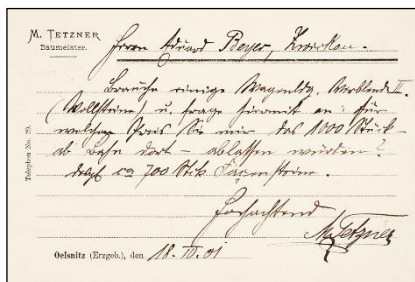 M. TETZNER
Baumeister.
Herrn Eduard Beyer, Zwickau.
Brauche einige Wagenldg. Verblender II.
(Vollsteine) u. frage hiermit an: für
welchen Preis Sie mir das 1000 Stück
ab Bahn dort – ablassen würden?
ca 700 Stck
Telephon No. 29.
Hochachtend
M. Tetzner
Oelsnitz (Erzgeb.), den 18. IV. 01